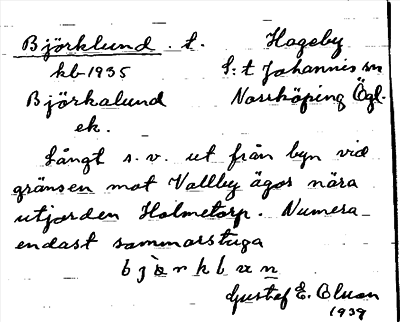 Björklund. t. Hageby
kb-1935 S:t Johannis sn
Björkalund Norrköping Ögl.
ek.
Långt s.v. ut från byn vid
gränsen mot Vallby ägor nära
utjorden Holmetorp. Numera
endast sommarstuga
Gustaf E. Olson
1939